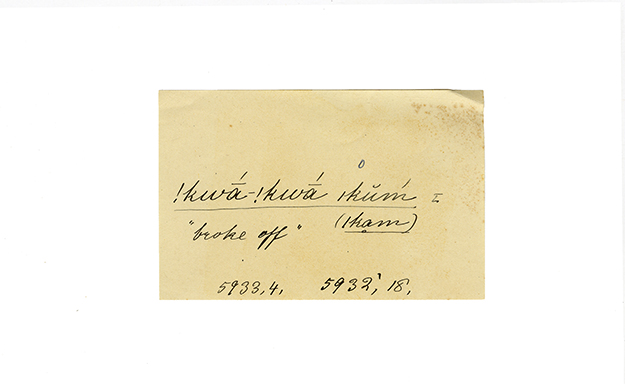 !kwā́-!kwā́ ıkŭḿ I
"broke off" (ıkạm)
5933,4, 5932', 18,